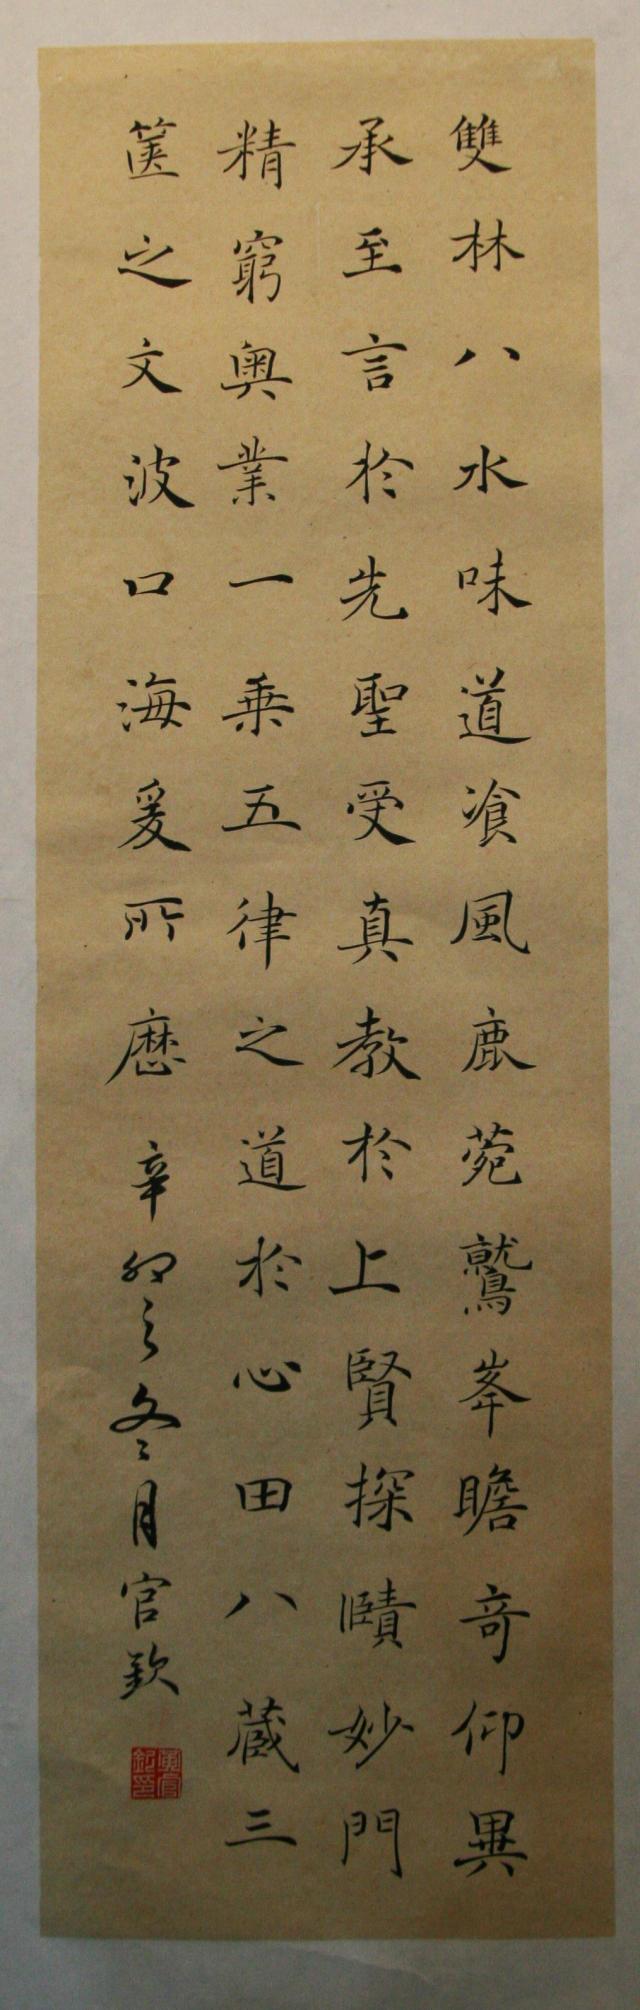 雙林八水味道飡風鹿菀鷲峯瞻奇仰異
承至言於先聖受真教於上賢探賾妙門
精窮奧業一乗五律之道於心田八蔵三
篋之文波口海爰所歷
辛卯之冬月官欽